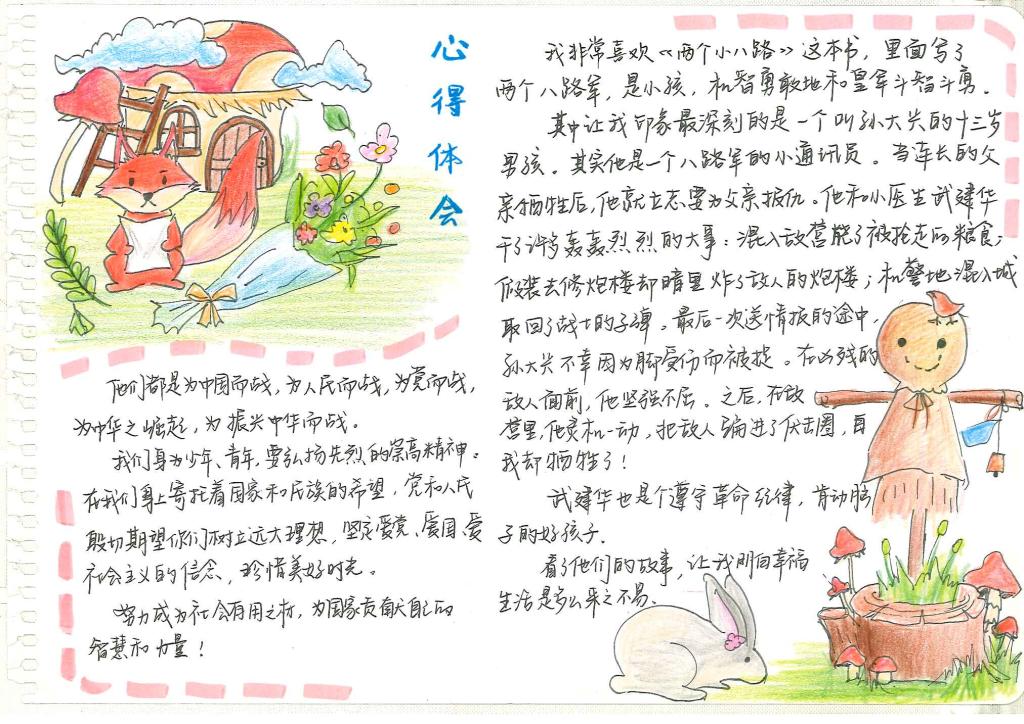 心得体会
我非常喜欢《两个小八路》这本书，里面写了
两个八路军，是小孩，机智勇敢地和皇军斗智斗勇。
其中让我印象最深刻的是一个叫孙大兴的十三岁
男孩。其实他是一个八路军的小通讯员。当连长的父
亲牺牲后，他就立志要为父亲报仇。他和小医生武建华
干了许多轰轰烈烈的大事：混入敌营烧了被抢走的粮食；
假装去修炮楼却暗里炸了敌人的炮楼；机警地混入城
取回了战士的子弹。最后一次送情报的途中，
孙大兴不幸因为脚受伤而被捉。在凶残的
敌人面前，他坚强不屈。之后，在敌
营里，他灵机一动，把敌人骗进了伏击圈，自
我却牺牲了！
武建华也是个遵守革命纪律，肯动脑
子的好孩子.
看了他们的故事，让我明白幸福
生活是多么来之不易、
他们都是为中国而战，为人民而战，为党而战，
为中华之崛起，为振兴中华而战。
我们身为少年、青年，要弘扬先烈的崇高精神。
在我们身上寄托着国家和民族的希望，党和人民
殷切期望你们树立远大理想，坚定爱党、爱国、爱
社会主义的信念，珍惜美好时光。
努力成为社会有用之材，为国家贡献自己的
智慧和力量！